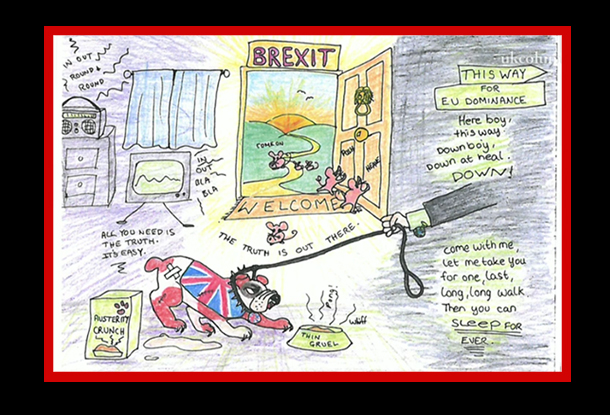 BREXIT
IN OUT
ROUND &
ROUND
IN
OUT
BLA
BLA
COME ON
PUSH
HEAVE
WELCOME
THE TRUTH IS OUT THERE.
ALL YOU NEED IS
THE TRUTH.
IT'S EASY.
AUSTERITY
CRUNCH
THIN
GRUEL
Pong!
Wuff
THIS WAY
FOR
EU DOMINANCE
Here boy,
this way.
Down boy,
down at heal.
DOWN!
Come with me,
let me take you
for one, last,
long, long walk
Then you can
SLEEP FOR
EVER.